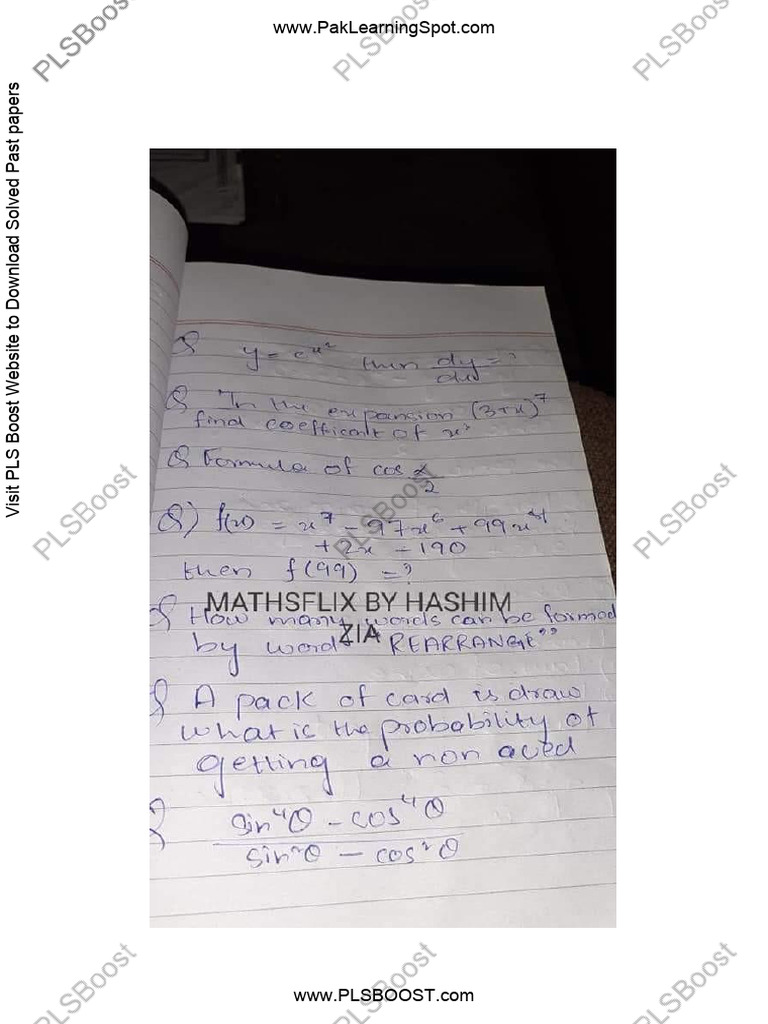 www.PakLearningSpot.com
PLSBoost PLSBoost PLSBoost
Visit PLS Boost Website to Download Solved Past papers
Q y = e^x² then dy/dx = ?
Q In the expansion (3+x)^7
find coefficent of
Q Formula of cos α/2
Q) f(x) = x^7 - 97x^6 + 99x^4
+ 2x - 190
then f(99) = ?
MATHSFLIX BY HASHIM
ZIA
Q How many words can be formed
by word "REARRANGE"
Q A pack of card is draw
what is the probability of
getting a non aced
Q sin⁴θ - cos⁴θ
sin²θ - cos²θ
PLSBoost PLSBoost PLSBoost
PLSBoost PLSBoost PLSBoost
www.PLSBOOST.com